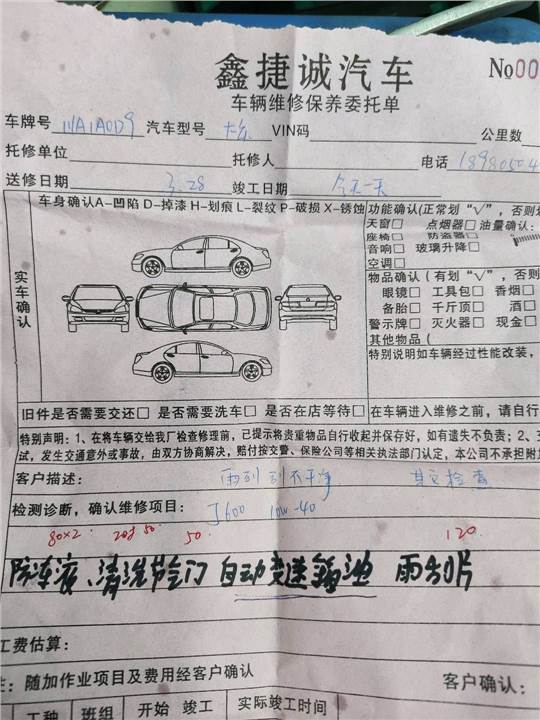 鑫捷诚汽车
№00
车辆维修保养委托单
车牌号 川A1A0D9 汽车型号 大众 VIN码 公里数
托修单位 托修人 电话
送修日期 3.28 竣工日期 今天一天
车身确认A-凹陷 D-掉漆 H-划痕 L-裂纹 P-破损 X-锈蚀
功能确认(正常划“√”, 否则
天窗□ 点烟器□ 油量确认:
座椅□ 防盗器□
音响□ 玻璃升降□
空调□
实车确认
物品确认(有划“√”, 否则
眼镜□ 工具包□ 香烟□
备胎□ 千斤顶□ 酒□
警示牌□ 灭火器□ 现金□
其他物品(
特别说明如车辆经过性能改装,
旧件是否需要交还□ 是否需要洗车□ 是否在店等待□ 在车辆进入维修之前, 请自行
特别声明: 1、在将车辆交给我厂检查修理前, 已提示将贵重物品自行收起并保存好, 如有遗失不负责; 2、
试, 发生交通意外或事故, 由双方协商解决, 赔付按交警、保险公司等相关执法部门认定, 本公司不承担
客户描述: 雨刮 刮不干净 其它检查
检测诊断, 确认维修项目: J600 10w-40
80×2 50 50 120
防冻液、清洗节气门 自动变速箱油 雨刮片
工费估算:
注: 随加作业项目及费用经客户确认 客户确认:
工种 班组 开始 竣工 实际竣工时间